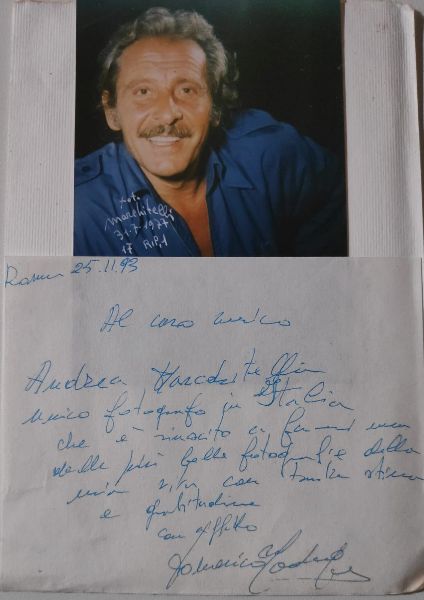 foto
marchitelli
31.7.1977
17 RIP.1
Roma 25.11.93
Al caro amico
Andrea Marchitelli
unico fotografo in Italia
che è riuscito a farmi una
delle più belle fotografie della
mia vita con tanta stima
e gratitudine
con affetto
Domenico Modugno